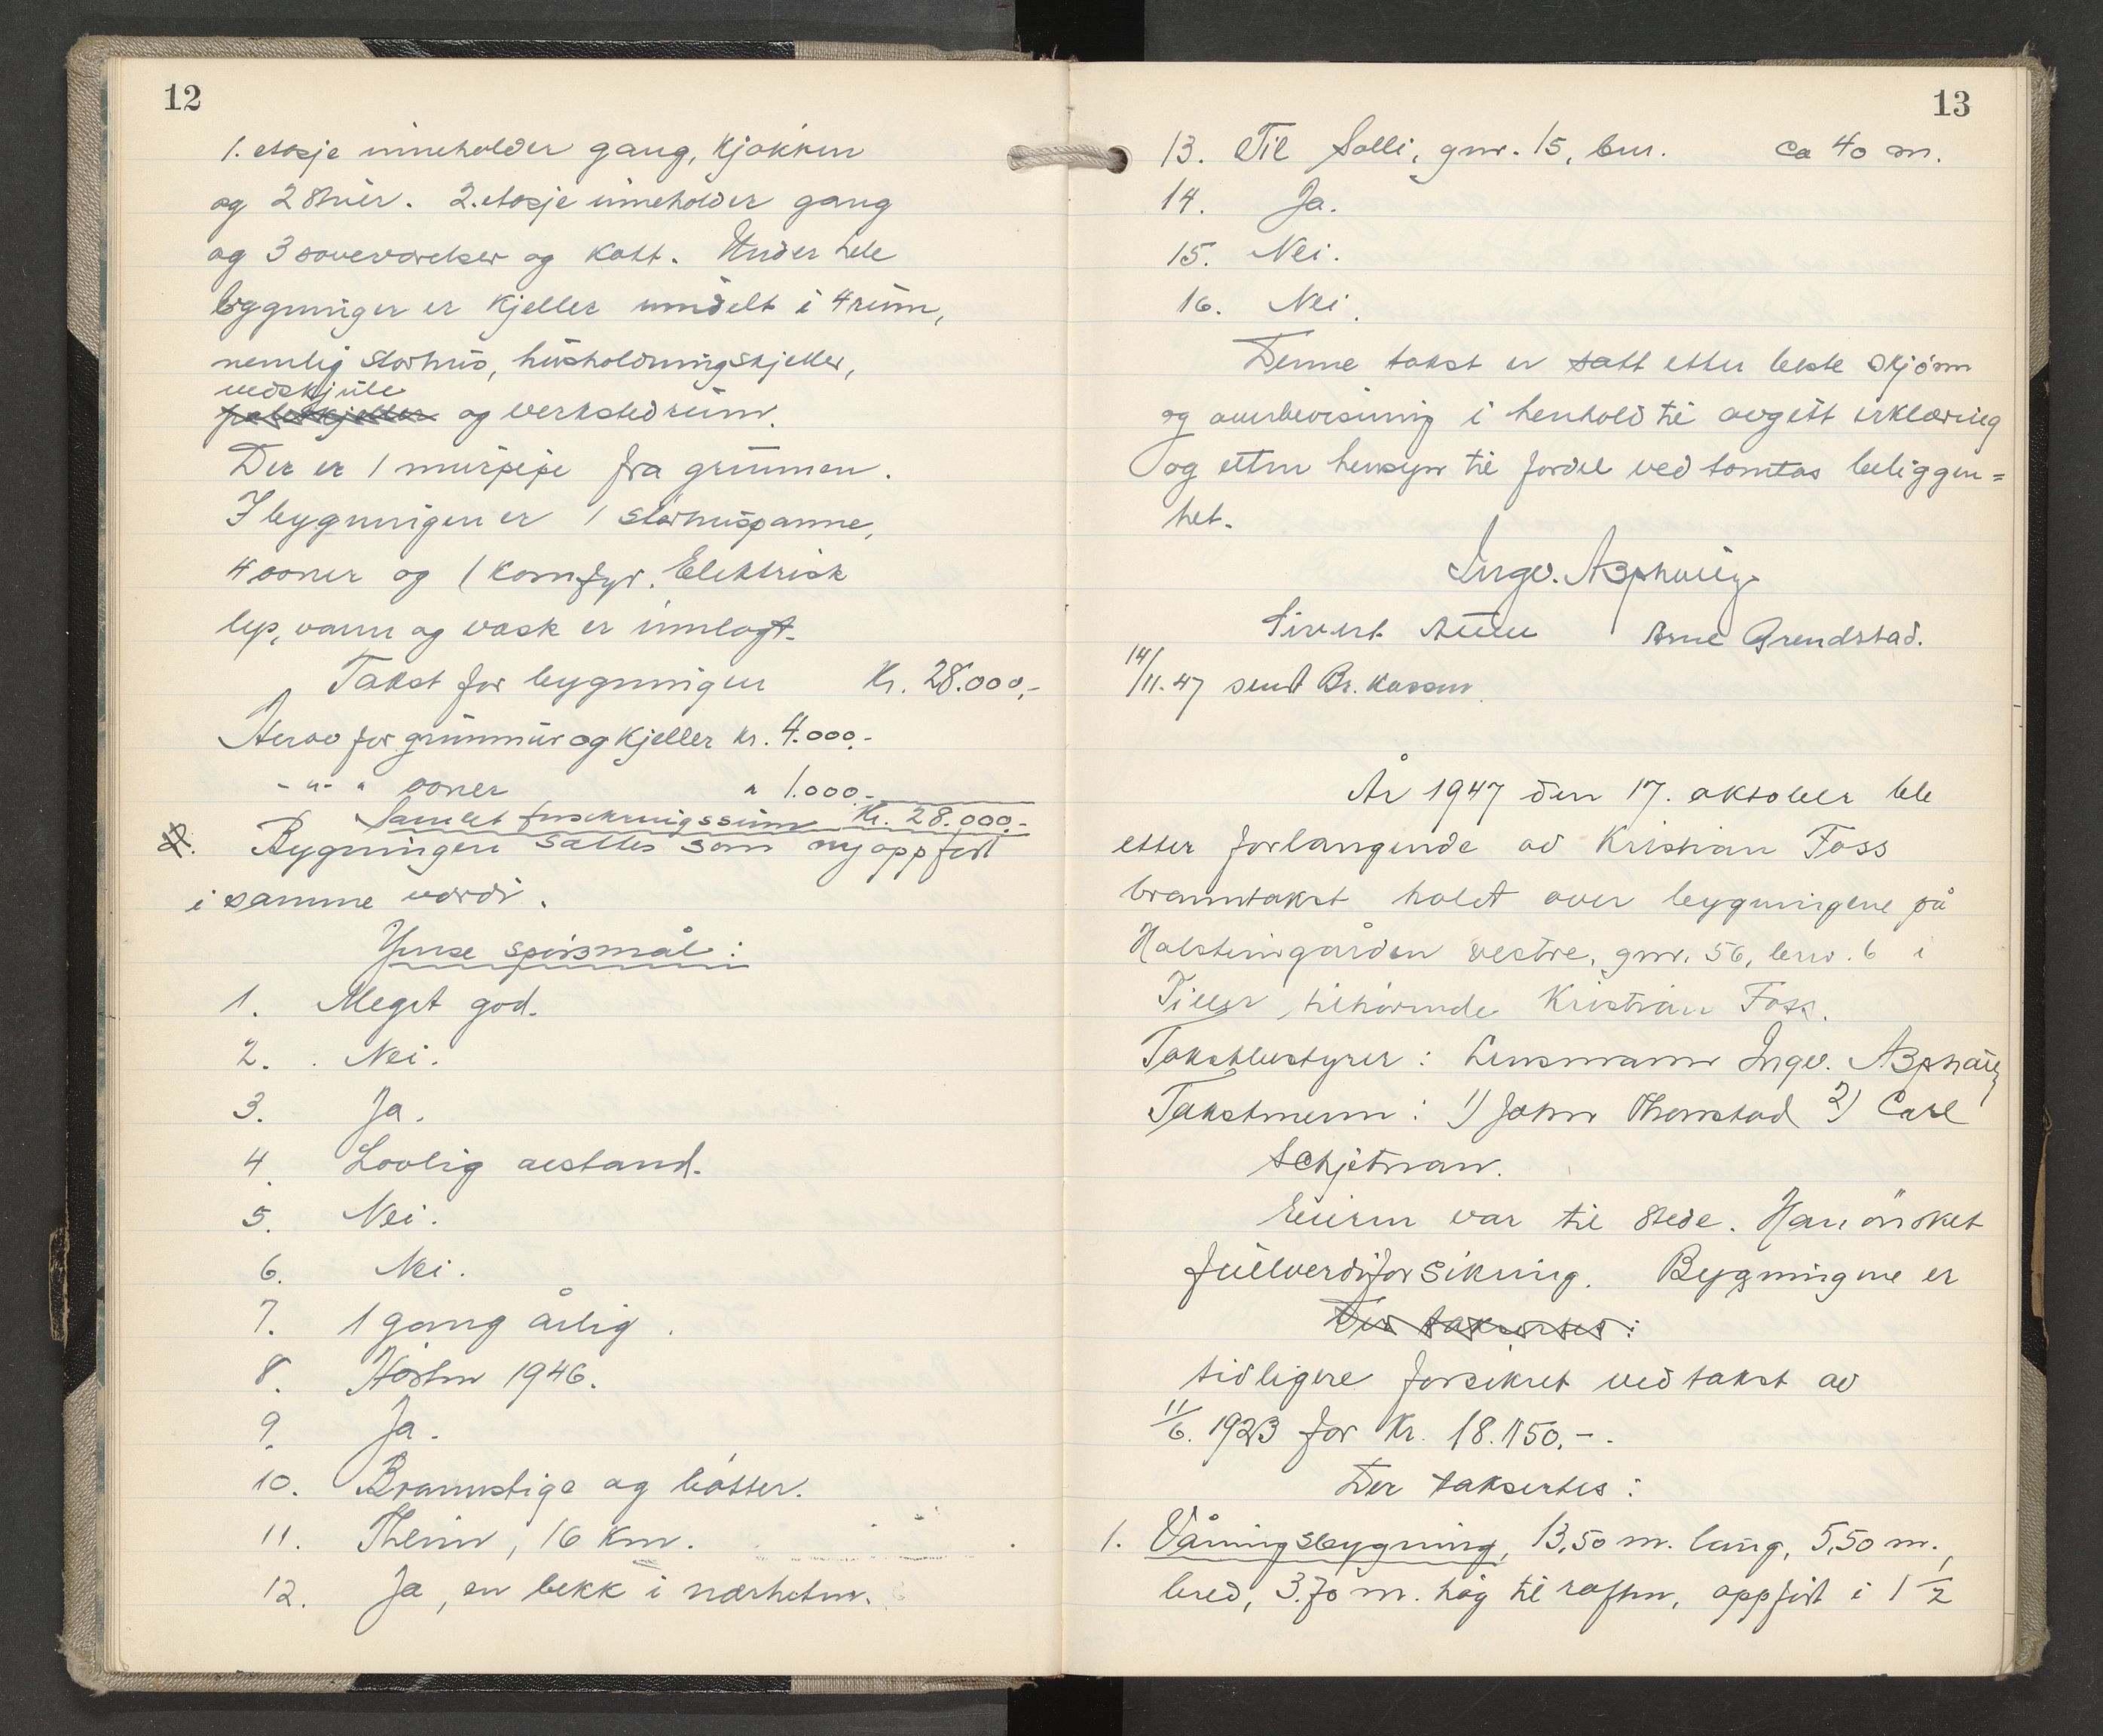 12
1. etasje inneholder gang, kjøkken
og 2 stuer. 2. etasje inneholder gang
og 3 soveværelser og kott. Under hele
bygningen er kjeller inndelt i 4 rum,
nemlig storhus, husholdningskjeller,
vedskjule
og verkstedrum.
Der er 1 murpipe fra grunnen.
I bygningen er 1 storhuspanne,
4 ovner og 1 komfyr. Elektrisk
lys, vann og vask er innlagt.
Takst for bygningen Kr. 28.000,-
Herav for grunnmur og kjeller kr. 4.000.-
- " - " ovner " 1.000.-
Samlet forsikringssum Kr. 28.000.-
Bygningen sattes som ny oppført
i samme verdi.
Ymse spörsmål:
1. Meget god.
2. Nei.
3. Ja.
4. Lovlig avstand.
5. Nei.
6. Nei.
7. 1 gang årlig.
8. Høsten 1946.
9. Ja.
10. Brannstige og bøtter.
11. Theim, 16 km.
12. Ja, en bekk i nærheten.
13
13. Til Solli, gnr. 15, bnr. ca 40 m.
14. Ja.
15. Nei.
16. Nei.
Denne takst er satt etter beste skjønn
og overbevisning i henhold til avgitt erklæring
og uten hensyn til fordel ved tomtas beliggen=
het.
Ingv. Asphaug
Sivert Arne Grendstad.
14/11.47 sendt Br. kassen
År 1947 den 17. oktober ble
etter forlangende av Kristian Foss
branntakst holdt over bygningene på
Halsteingården vestre, gnr. 56, bnr. 6 i
Tiller tilhørende Kristian Foss.
Takstbestyrer: Lensmann Ingv. Asphaug
Takstmenn: 1) John Thonstad 2) Carl
Schjetnan.
Eieren var til stede. Han ønsket
fullverdiforsikring. Bygningene er
Der taksertes:
tidligere forsikret ved takst av
11/6. 1923 for Kr. 18.150.-.
Der taksertes:
1. Våningsbygning, 13,50 m. lang, 5,50 m.,
bred, 3.70 m. høg til raften, oppført i 1 1/2